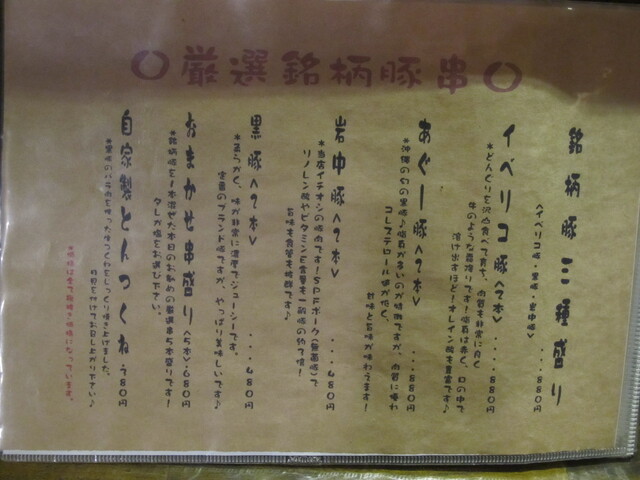 ○厳選銘柄豚串○
銘柄豚三種盛り
<イベリコ豚・黒豚・岩中豚> ・・・・880円
イベリコ豚<2本> ・・・・880円
*どんぐりを沢山食べて育ち、肉質も非常に良く
牛のような霜降りです!脂質は赤く、口の中で
溶け出すほど!オレイン酸も豊富です♪
あぐー豚<2本> ・・・・880円
*沖縄の幻の黒豚♪脂質があまいのが特徴ですが、肉質に優れ
コレステロール値が低く、
甘味と旨味が味わえます!
岩中豚<2本> ・・・・480円
*当店イチオシの豚肉です!SPFポーク(無菌豚)で
リノレン酸やビタミンE含量も一般豚の約7倍!
旨味も食管も抜群です♪
黒豚<2本> ・・・・480円
*柔らかく、味が非常に濃厚でジューシーです。
定番のブランド豚ですが、やっぱり美味しいです♪
おまかせ串盛り<5本>・680円
*銘柄豚を1本混ぜた本日のお勧めの厳選串5本盛りです!
タレか塩をお選び下さい。
自家製とんつくね280円
*黒豚のバラ肉を使ったつくねをじっくり焼き上げました。
卵黄を付けてお召し上がり下さい♪